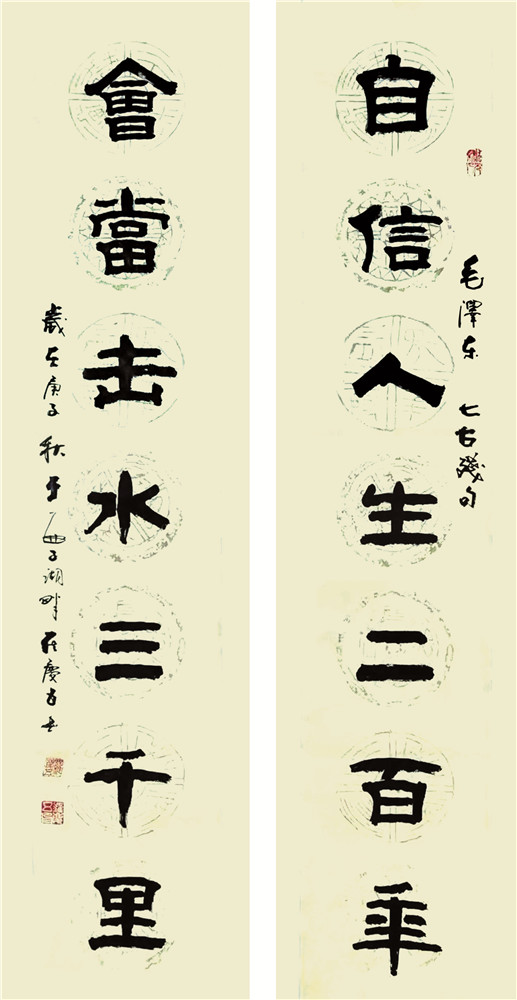 毛澤东 七古殘句
自信人生二百年
會當击水三千里
歲在庚子秋于西子湖畔